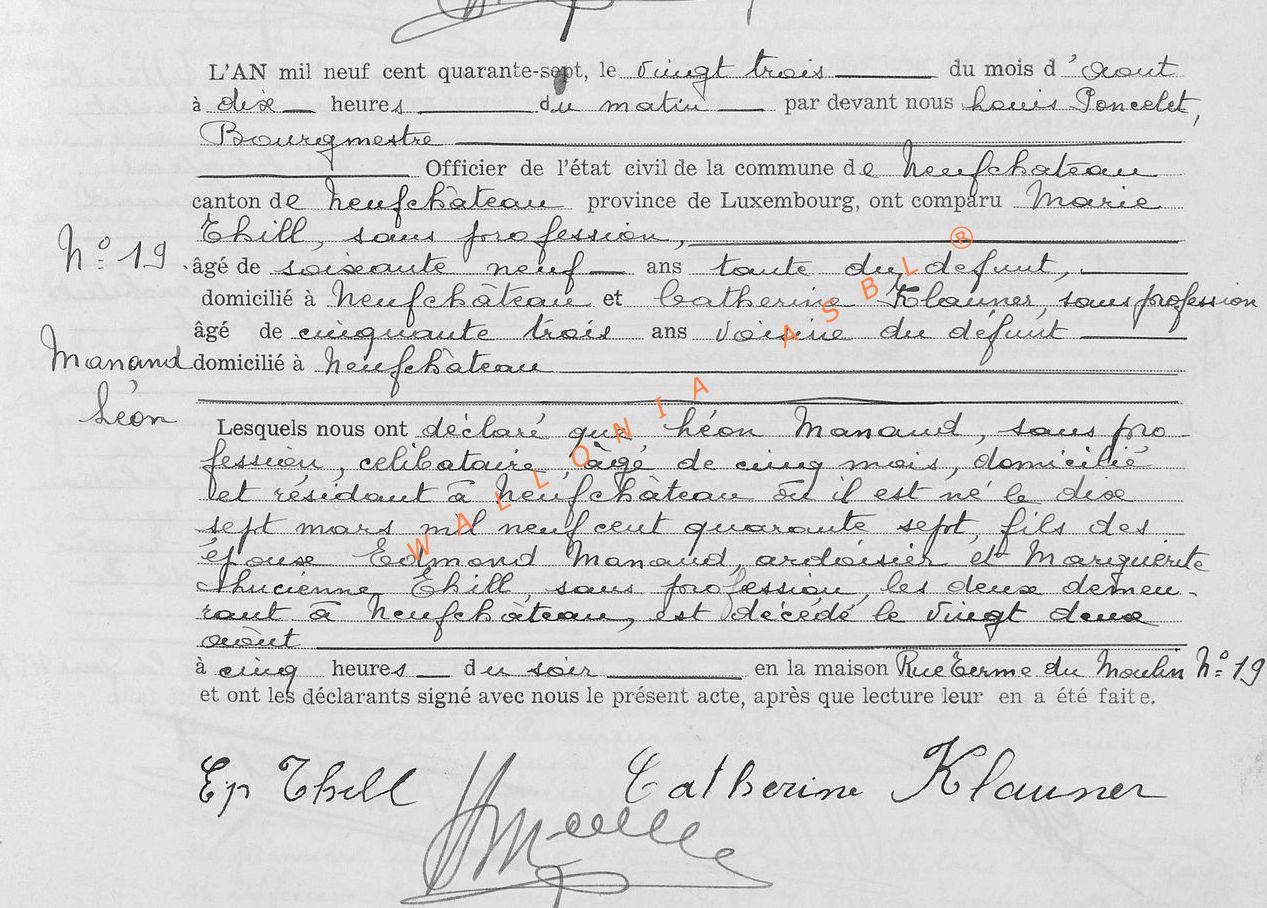 L'AN mil neuf cent quarante-sept, le vingt trois du mois d'août
à dix heures du matin par devant nous Louis Poncelet,
Bourgmestre
Officier de l'état civil de la commune de Neufchateau
canton de Neufchâteau province de Luxembourg, ont comparu Marie
Thill, sans profession,
N° 19
âgé de soixante neuf ans tante du défunt,
domicilié à Neufchâteau et Catherine Klauner, sans profession
âgé de cinquante trois ans voisine du défunt
Manand domicilié à Neufchâteau
Léon
Lesquels nous ont déclaré que Léon Manand, sans pro
fession, celibataire, âgé de cinq mois, domicilié
et résidant à Neufchâteau où il est né le dix
sept mars mil neuf cent quarante sept, fils des
époux Edmond Manand, ardoisier et Marguerite
Lucienne Thill, sans profession, les deux demeu-
rant à Neufchâteau, est décédé le vingt deux
août
à cinq heures du soir en la maison Rue Terme du Moulin N° 19
et ont les déclarants signé avec nous le présent acte, après que lecture leur en a été faite.
Ep Thill Catherine Klauner
WALLONIA ASBL ®